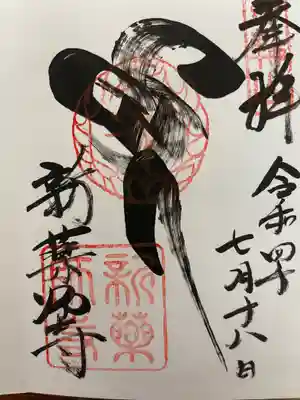 奉拝
令和四年
七月十八日
新薬師寺
新薬
師寺